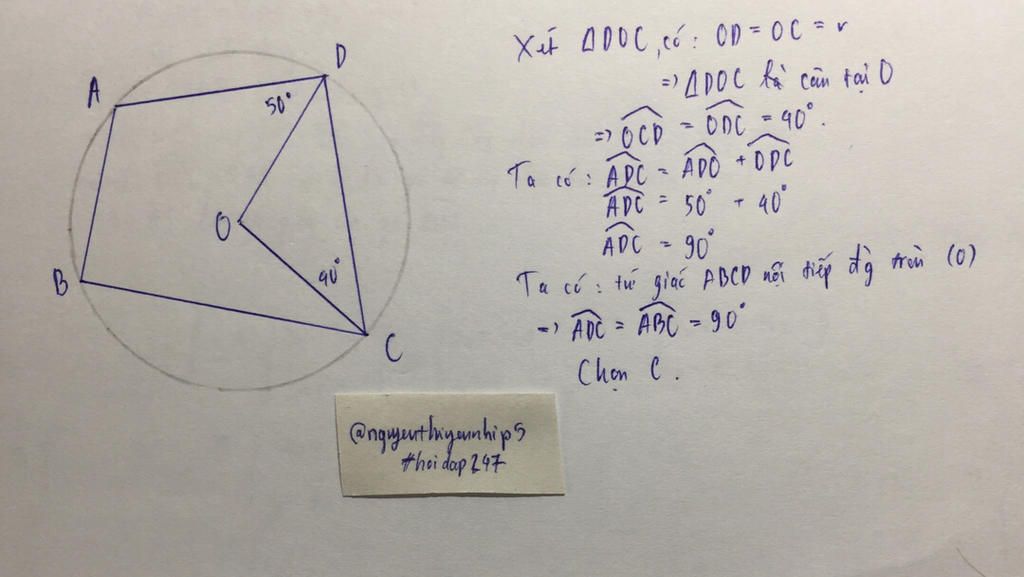 D
A
50°
O
B
40°
C
Xét ΔDOC, có: OD = OC = r
=> ΔDOC là cân tại O
=> OCD = ODC = 40°.
Ta có: ADC = ADO + ODC
ADC = 50° + 40°
ADC = 90°
Ta có: tứ giác ABCD nội tiếp đg tròn (O)
=> ADC = ABC = 90°
Chọn C.
@nguyenthiyennhip5
#hoidap247